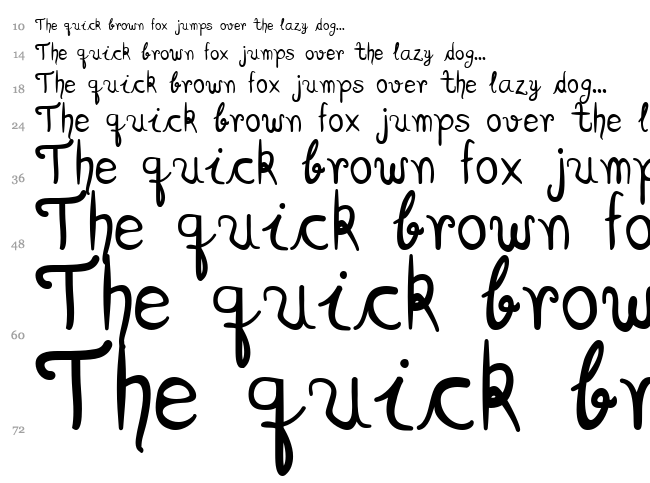 10 The quick brown fox jumps over the lazy dog...
14 The quick brown fox jumps over the lazy dog...
18 The quick brown fox jumps over the lazy dog...
24 The quick brown fox jumps over the l
36 The quick brown fox jump
48 The quick brown fo
60 The quick brow
72 The quick br